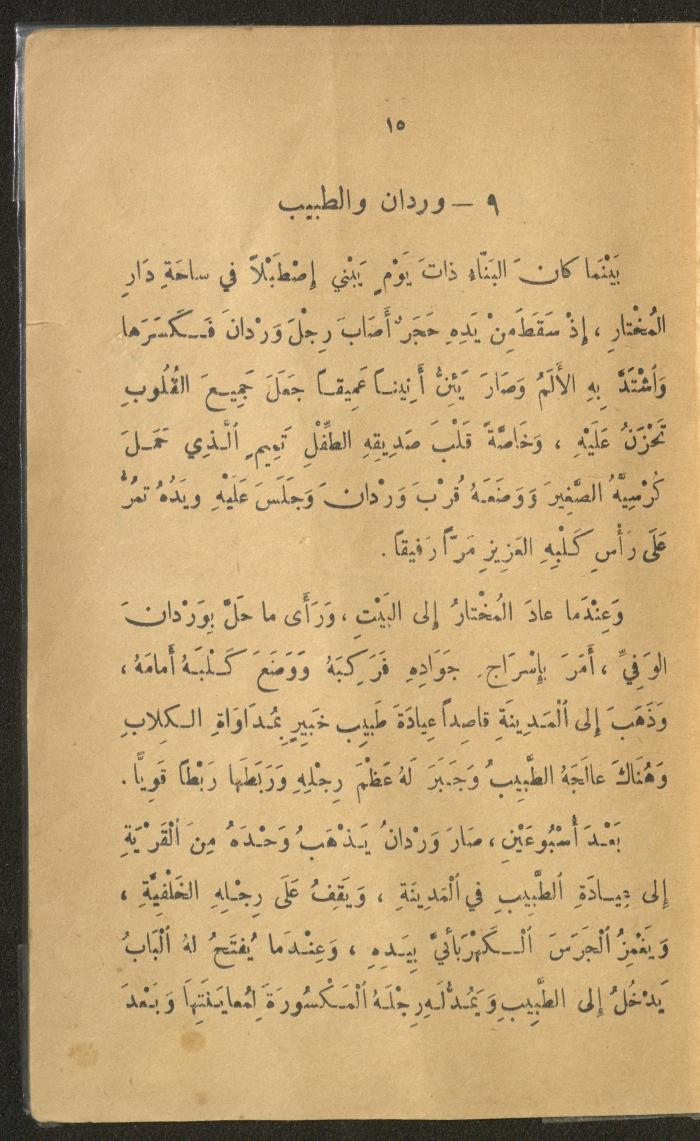 ١٥
٩ — وردان والطبيب
بَيْنَما كانَ البَنّاءُ ذاتَ يَوْمٍ يَبْني إِصْطَبْلاً في ساحَةِ دَارِ
المُخْتارِ ، إِذْ سَقَطَ مِنْ يَدِهِ حَجَرٌ أَصَابَ رِجْلَ وَرْدانَ فَكَسَرَها
وَٱشْتَدَّ بِهِ الأَلَمُ وَصَارَ يَئِنُّ أَنِيناً عَمِيقاً جَعَلَ جَمِيعَ القُلُوبِ
تَحْزَنُ عَلَيْهِ ، وَخَاصَّةً قَلْبَ صَدِيقِهِ الطِّفْلِ تَمِيمٍ ٱلَّذِي حَمَلَ
كُرْسِيَّهُ الصَّغِيرَ وَوَضَعَهُ قُرْبَ وَرْدانَ وَجَلَسَ عَلَيْهِ ويَدُهُ تَمُرُّ
عَلَى رَأْسِ كَلْبِهِ العَزِيزِ مَرّاً رَفيقاً .
وَعِنْدَما عادَ المُخْتارُ إِلى البَيْتِ ، وَرَأَى ما حَلَّ بِوَرْدانَ
الوَفِيِّ ، أَمَرَ بِإِسْرَاجِ جَوَادِهِ فَرَكِبَهُ وَوَضَعَ كَلْبَهُ أَمامَهُ ،
وَذَهَبَ إِلى ٱلْمَدِينَةِ قاصِداً عِيادَةَ طَبِيبٍ خَبِيرٍ بِمُدَاوَاةِ الكِلابِ
وَهُنَاكَ عالَجَهُ الطَّبِيبُ وَجَبَرَ لَهُ عَظْمَ رِجْلِهِ وَرَبَطَها رَبْطاً قَوِيًّا .
بَعْدَ أُسْبُوعَيْنِ ، صَارَ وَرْدانُ يَذْهَبُ وَحْدَهُ مِنَ ٱلْقَرْيَةِ
إِلى عِيادَةِ ٱلطَّبِيبِ في ٱلْمَدِينَةِ ، وَيَقِفُ عَلَى رِجْلِهِ الخَلْفِيَّةِ ،
وَيَغْمِزُ ٱلْجَرَسَ ٱلْكَهْرَبائيَّ بِيَدِهِ ، وَعِنْدَما يُفتَحُ لهُ ٱلْبَابُ
يَدْخُلُ إِلى الطَّبِيبِ وَيَمُدُّ لَهِ رِجْلَهُ ٱلْمَكْسُورَةَ لِمُعايَنَتِهَا وَبَعْدَ